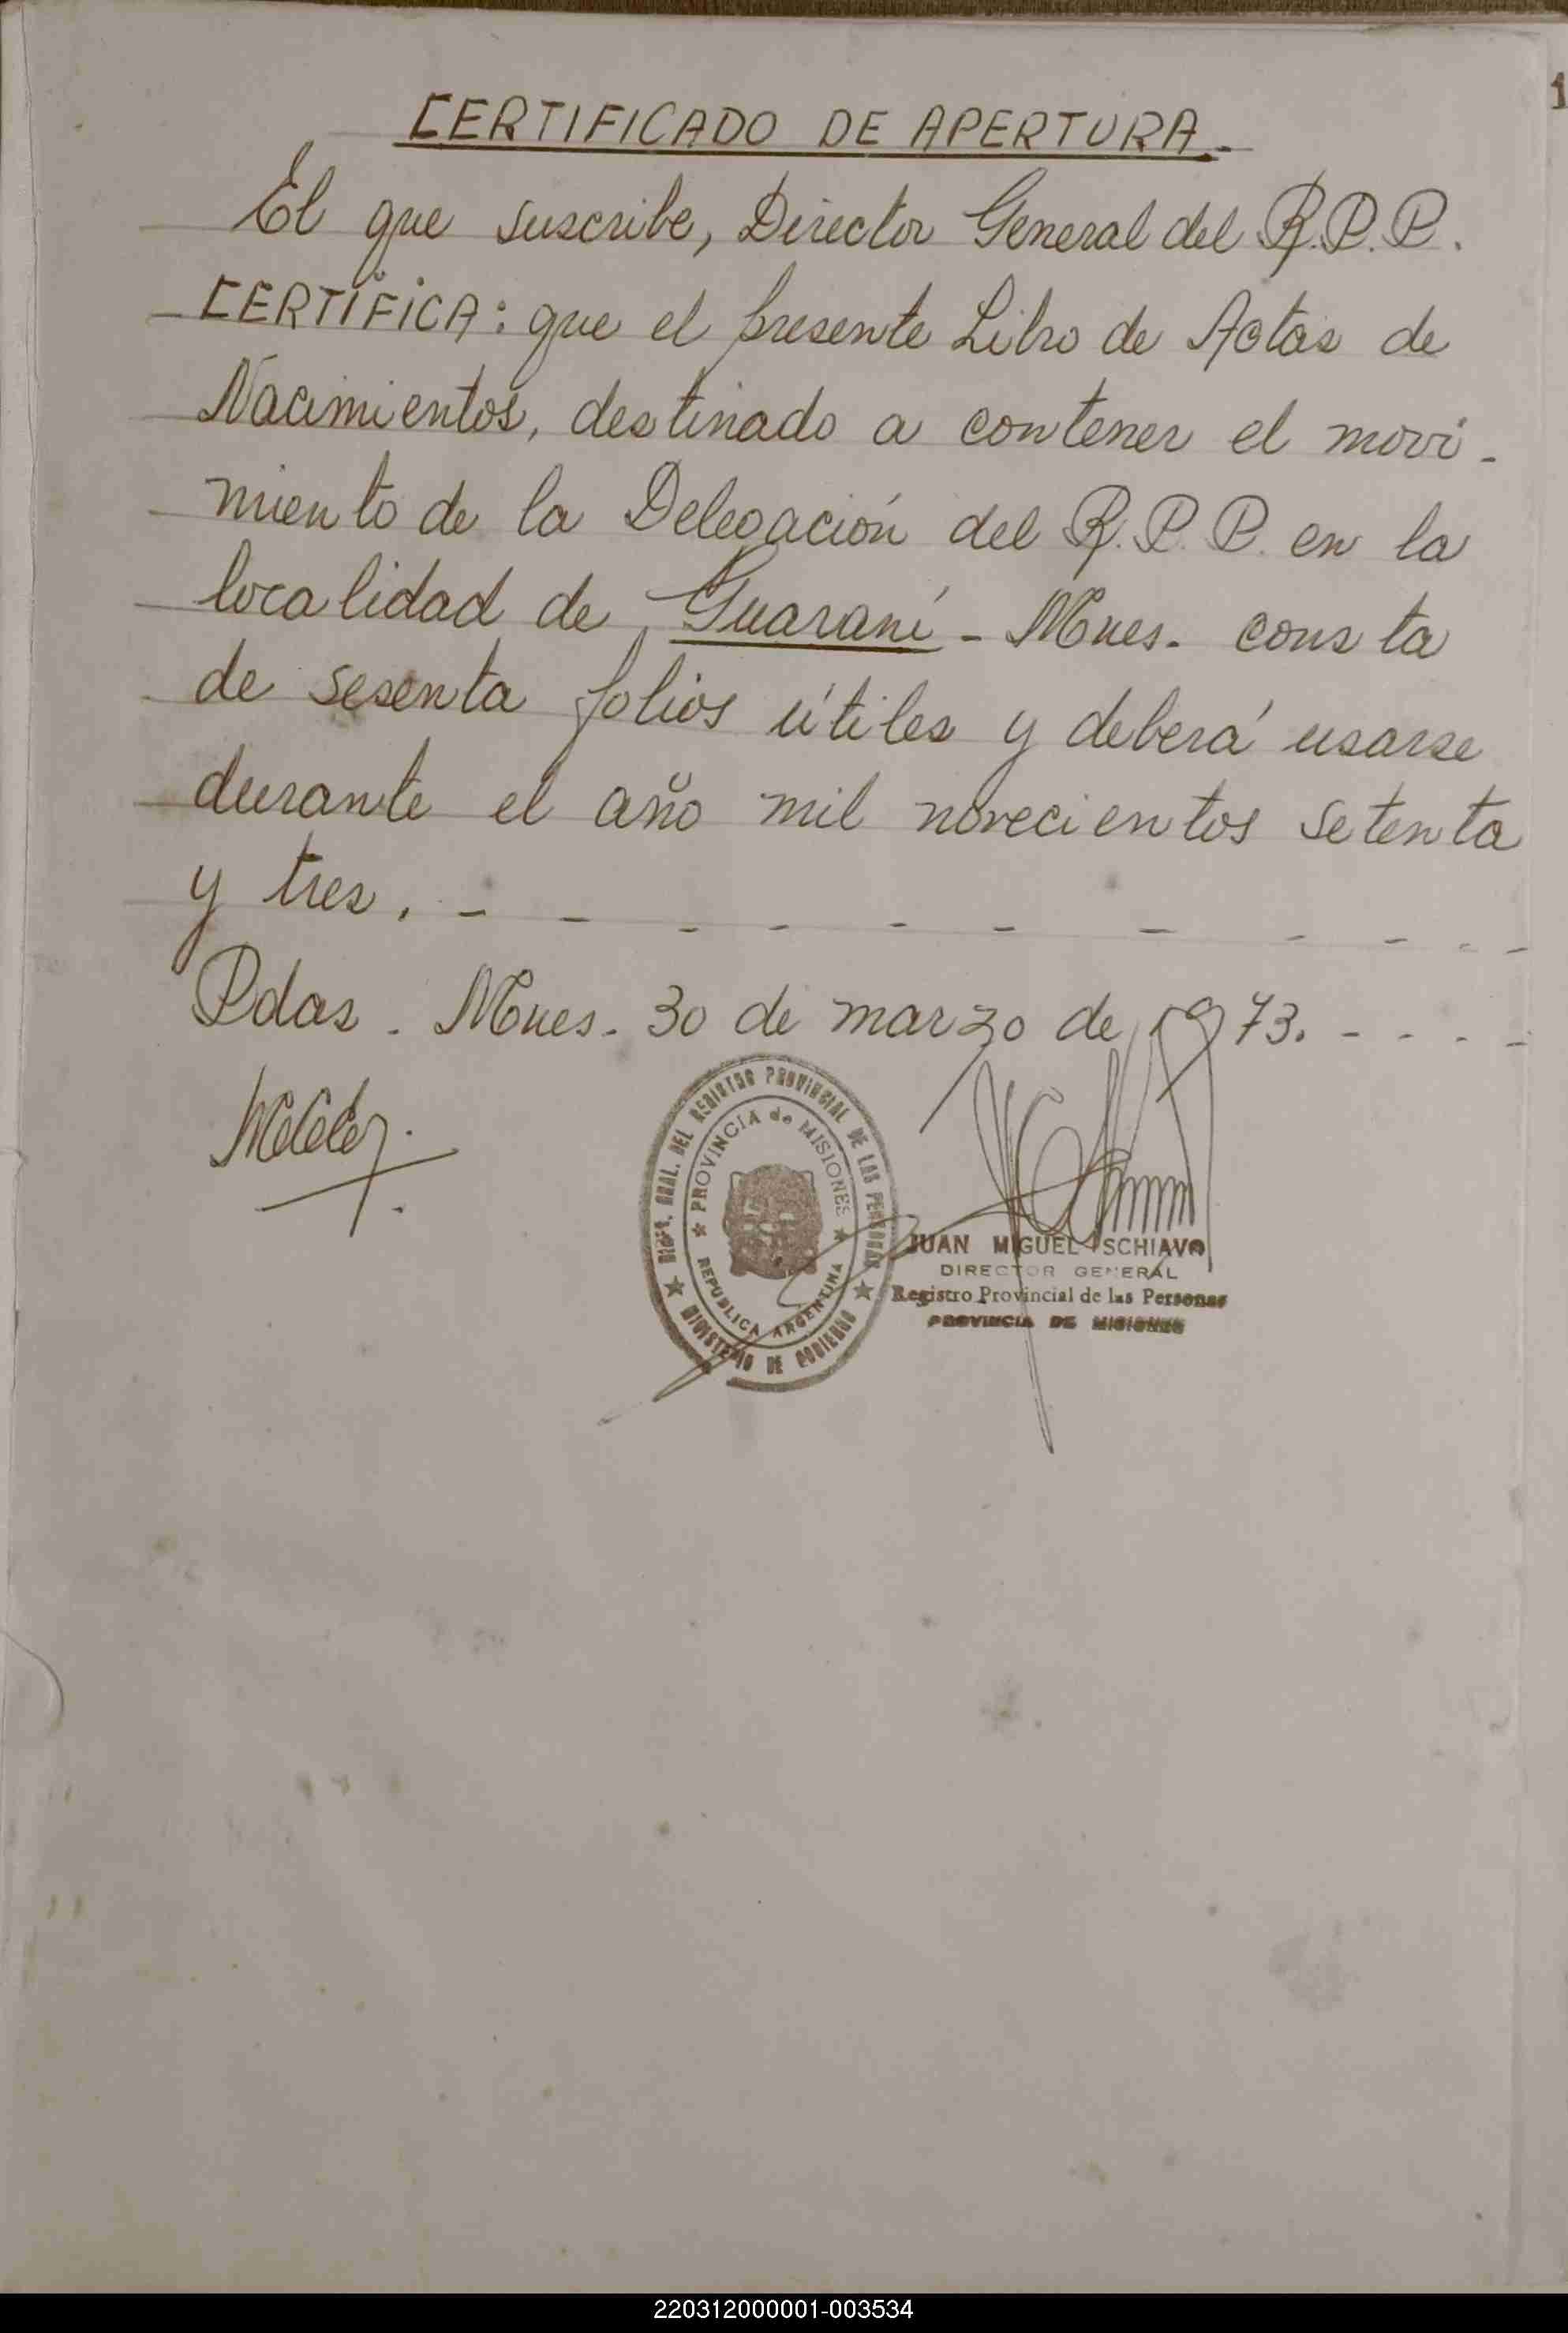 1
CERTIFICADO DE APERTURA.-
El que suscribe, Director General del R.P.P.
CERTIFICA: que el presente Libro de Actas de
Nacimientos, destinado a contener el movi-
miento de la Delegación del R.P.P. en la
localidad de Guaraní - Mnes. consta
de sesenta folios útiles y deberá usarse
durante el año mil novecientos setenta
y tres. - - - - - - - - - - -
Pdas. Mnes. 30 de marzo de 1973. - - - -
DIRC. GRAL. DEL REGISTRO PROVINCIAL DE LAS PERSONAS
★ PROVINCIA de MISIONES ★
REPUBLICA ARGENTINA
★ MINISTERIO DE GOBIERNO ★
JUAN MIGUEL SCHIAVO
DIRECTOR GENERAL
Registro Provincial de las Personas
PROVINCIA DE MISIONES
220312000001-003534